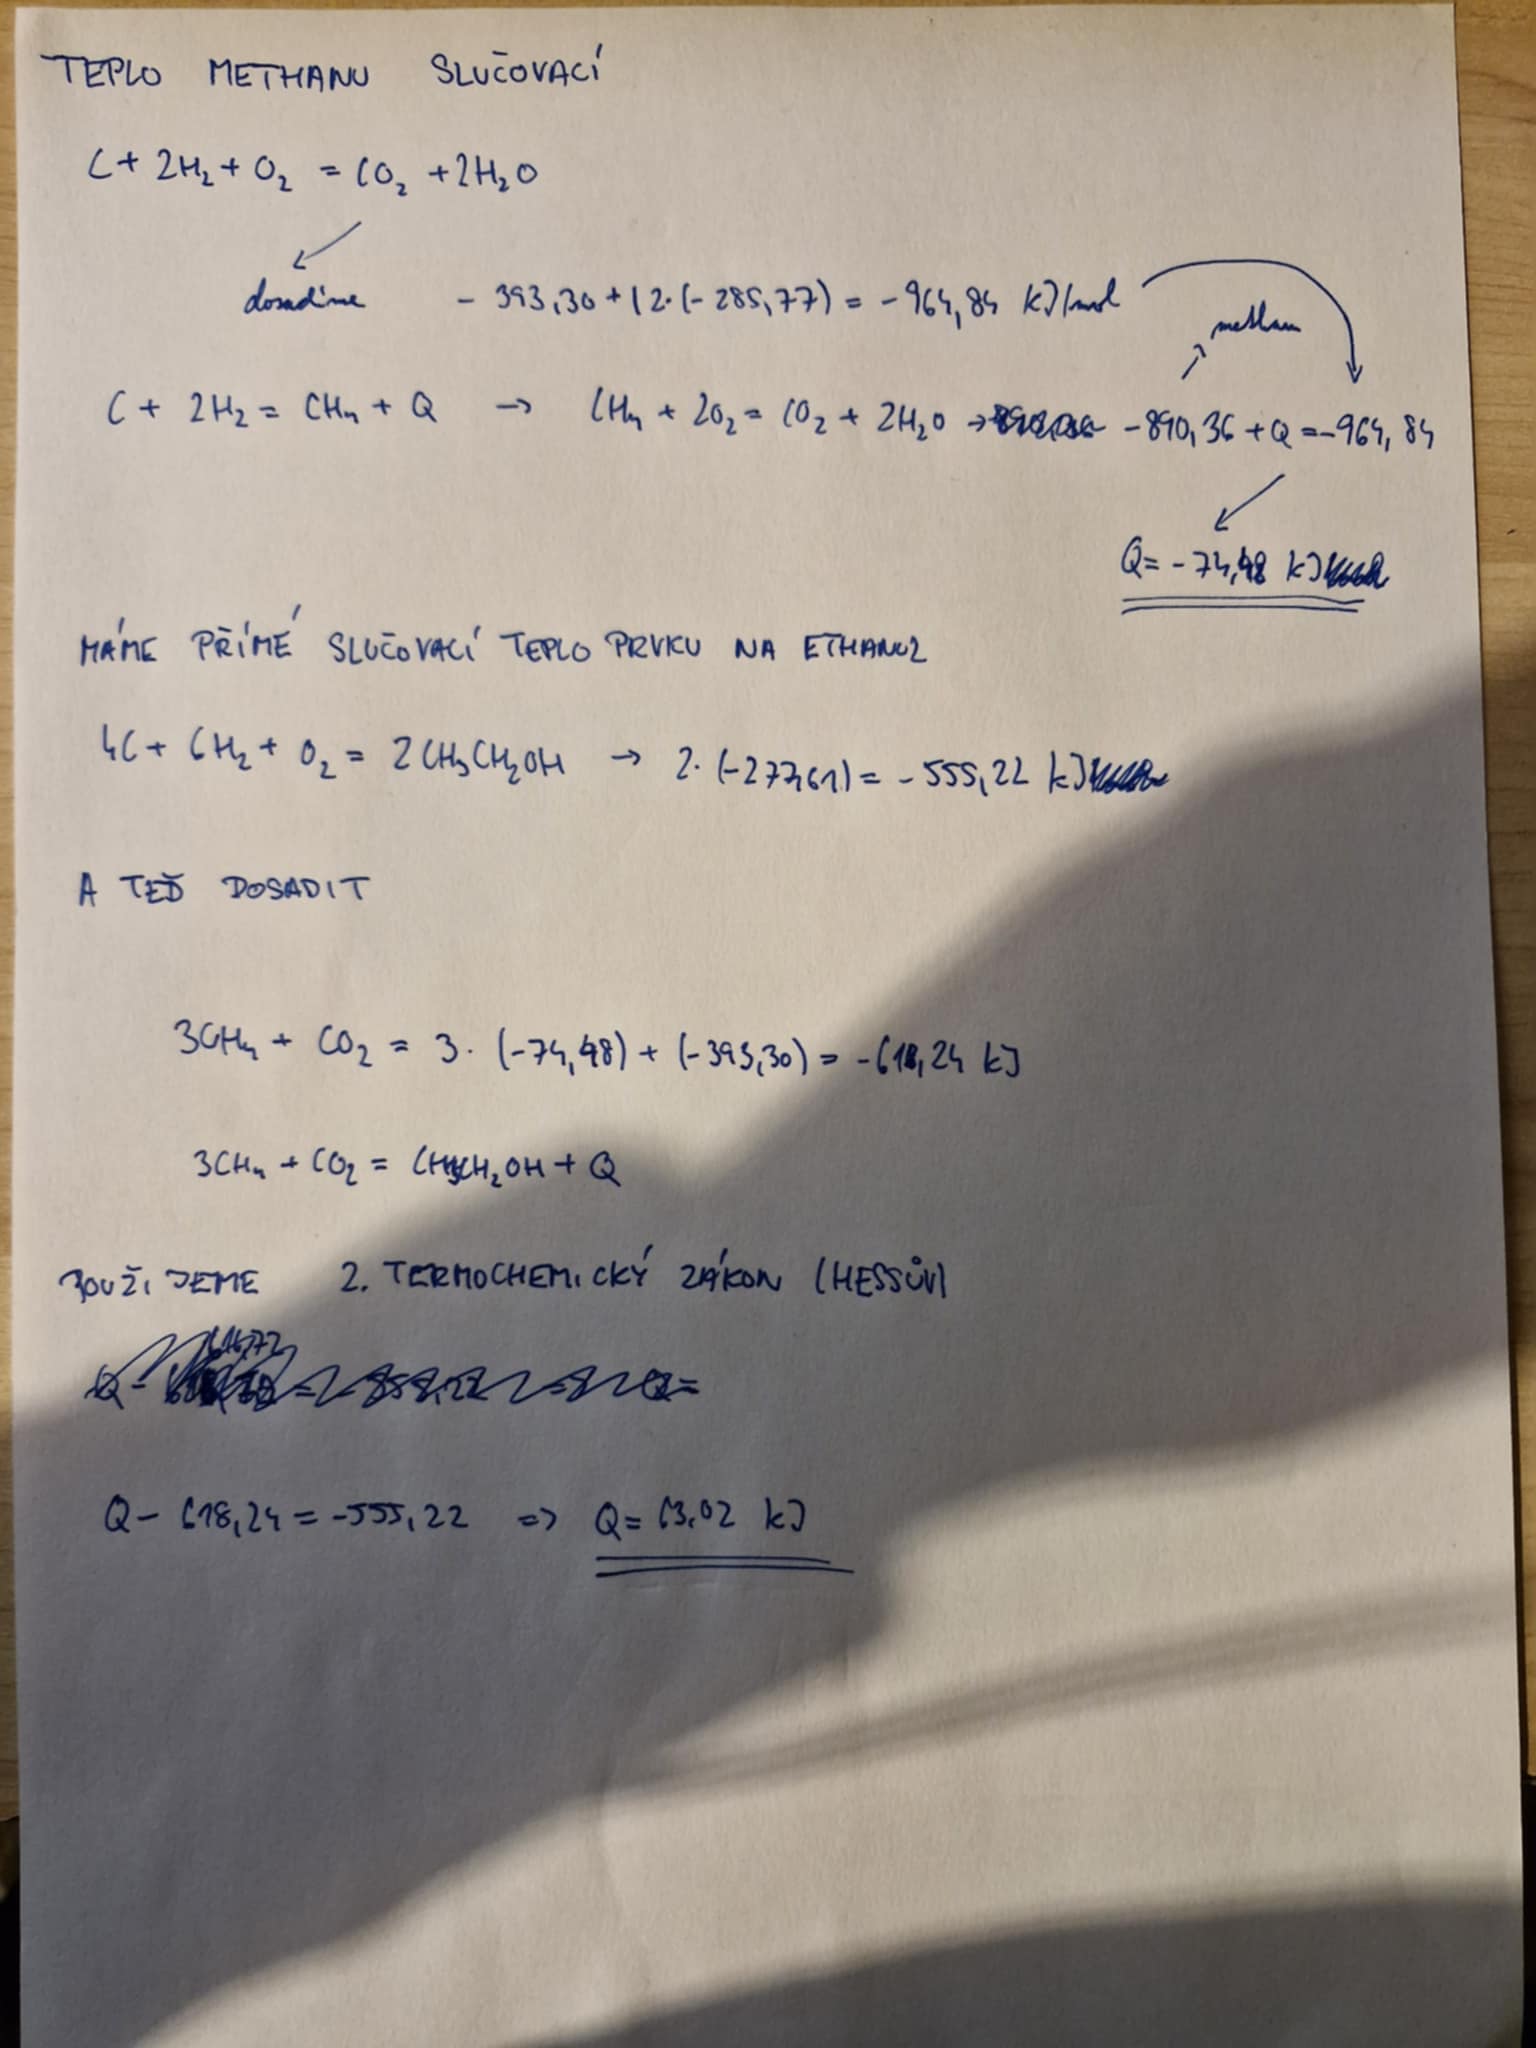 TEPLO METHANU SLUČOVACÍ
C + 2H₂ + O₂ = CO₂ + 2H₂O
dosadíme - 393,30 + (2·(-285,77) = -964,84 kJ/mol
methan
C + 2H₂ = CH₄ + Q → CH₄ + 2O₂ = CO₂ + 2H₂O → -890,36 + Q = -964,84
Q = -74,48 kJ
MÁME PŘÍMÉ SLUČOVACÍ TEPLO PRVKU NA ETHANOL
4C + 6H₂ + O₂ = 2CH₃CH₂OH → 2·(-277,61) = -555,22 kJ
A TEĎ DOSADIT
3CH₄ + CO₂ = 3·(-74,48) + (-393,30) = -618,24 kJ
3CH₄ + CO₂ = CH₃CH₂OH + Q
POUŽIJEME 2. TERMOCHEMICKÝ ZÁKON (HESSŮV)
Q - 618,24 = -555,22 => Q = 63,02 kJ